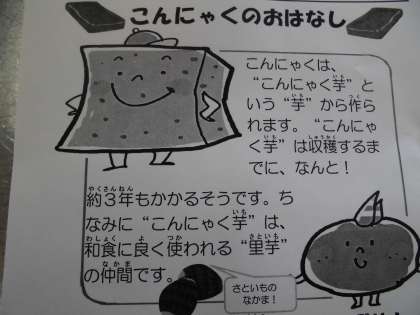 こんにゃくのおはなし
こんにゃくは、
“こんにゃく芋”と
いう“芋”から作ら
れます。“こんにゃ
く芋”は収穫するま
でに、なんと！
約３年もかかるそうです。ち
なみに“こんにゃく芋”は、
和食に良く使われる“里芋”
の仲間です。
さといもの
なかま！